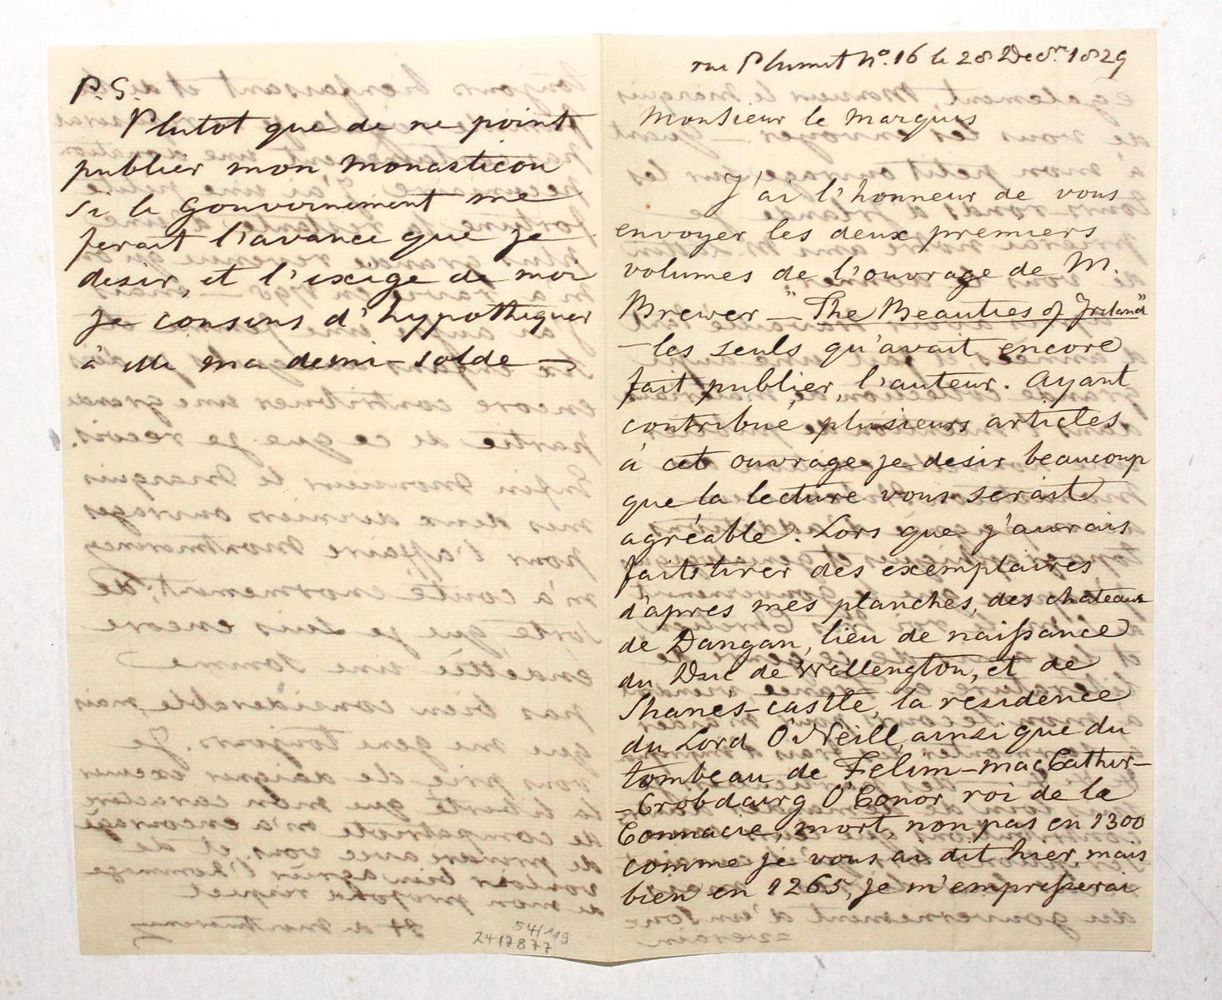 P.S.
Plutot que de ne point
publier mon monasticon
si le Gouvernement me
ferait l'avance que je
desir, et l'exige de moi
je consens d'hypothequer
à elle ma demi-solde —
54/119
2417877
rue Plumet No. 16 le 28 Decr. 1829
Monsieur le Marquis
J'ai l'honneur de vous
envoyer les deux premiers
volumes de l'ouvrage de M.
Brewer — "The Beauties of Ireland"
— les seuls qu'avait encore
fait publier, l'auteur. Ayant
contribué, plusieurs articles
à cet ouvrage je desir beaucoup
que la lecture vous serait
agréable. Lors que j'aurais
faits tirer des exemplaires
d'apres mes planches, des chateaux
de Dangan, lieu de naissance
du Duc de Wellington, et de
Shanes-castle, la residence
du Lord O'Neill, ainsi que du
tombeau de Felim-macCathur-
-Crobdairg O'Conor roi de la
Connacie, mort, non pas en 1300
comme je vous ai dit hier, mais
bien en 1265, je m'empresserai